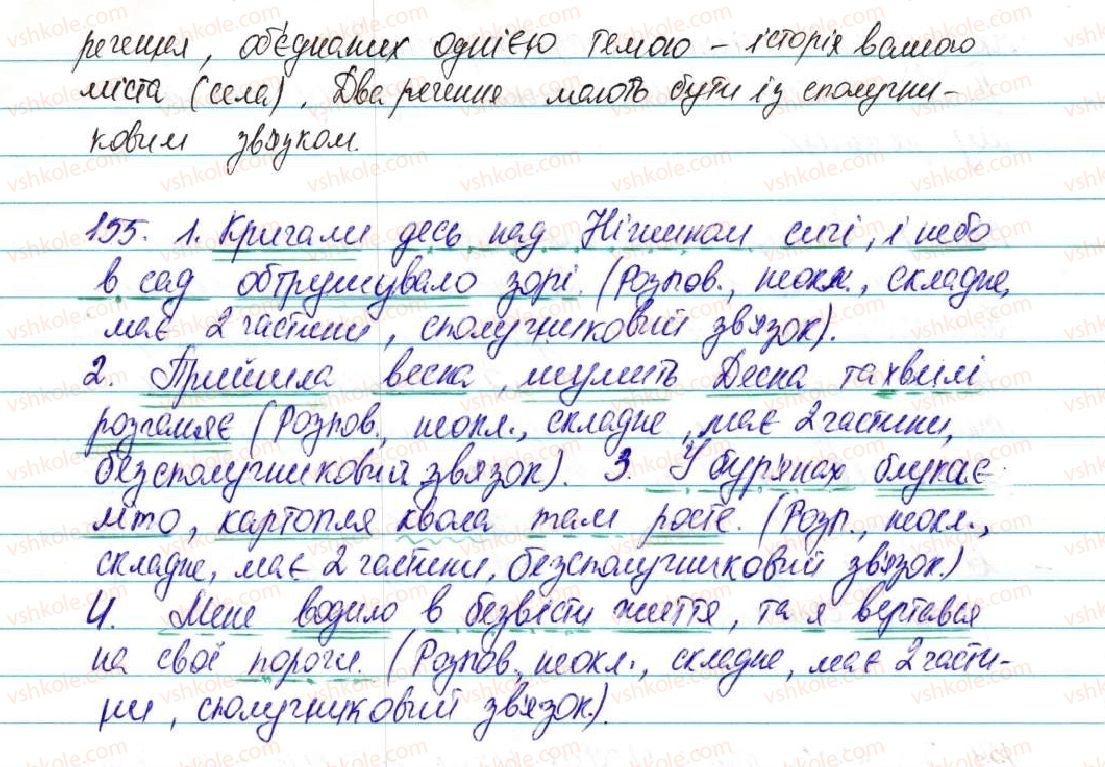 речення, об'єднаних однією темою – історія вашого
міста (села). Два речення мають бути із сполучни-
ковим зв'язком.
155. 1. Кричали десь над Ніжином сичі, і небо
в сад обтрушувало зорі. (Розпов., неокл., складне,
має 2 частини, сполучниковий зв'язок).
2. Прийшла весна, шумить Десна та хвилі
розганяє (Розпов., неокл., складне, має 2 частини,
безсполучниковий зв'язок). 3. У бур'янах блукає
літо, картопля квола там росте. (Розп., неокл.,
складне, має 2 частини, безсполучниковий зв'язок.)
4. Мене водило в безвісти життя, та я вертався
на свої пороги. (Розпов., неокл., складне, має 2 части-
ни, сполучниковий зв'язок.).